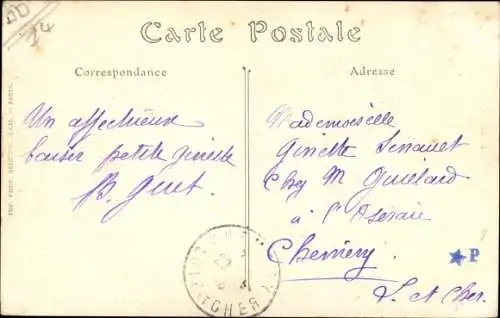 Carte Postale
Correspondance
Adresse
Un affectueux
baiser petite Ginette
B. Guet.
Mademoiselle
Ginette
Chez M Guillard
à l'
Chemery
L. et Cher.
P